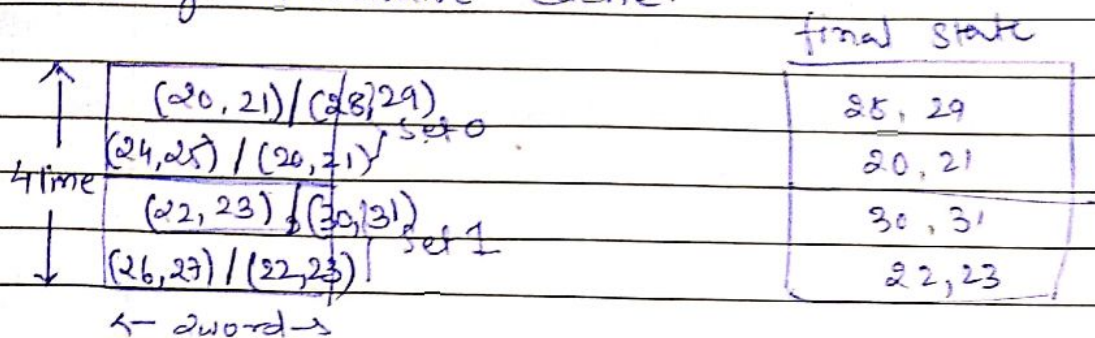 final state
(20, 21) / (28, 29)
set 0
(24, 25) / (20, 21)
4 line
(22, 23) / (30, 31)
set 1
(26, 27) / (22, 23)
← 2word →
28, 29
20, 21
30, 31
22, 23